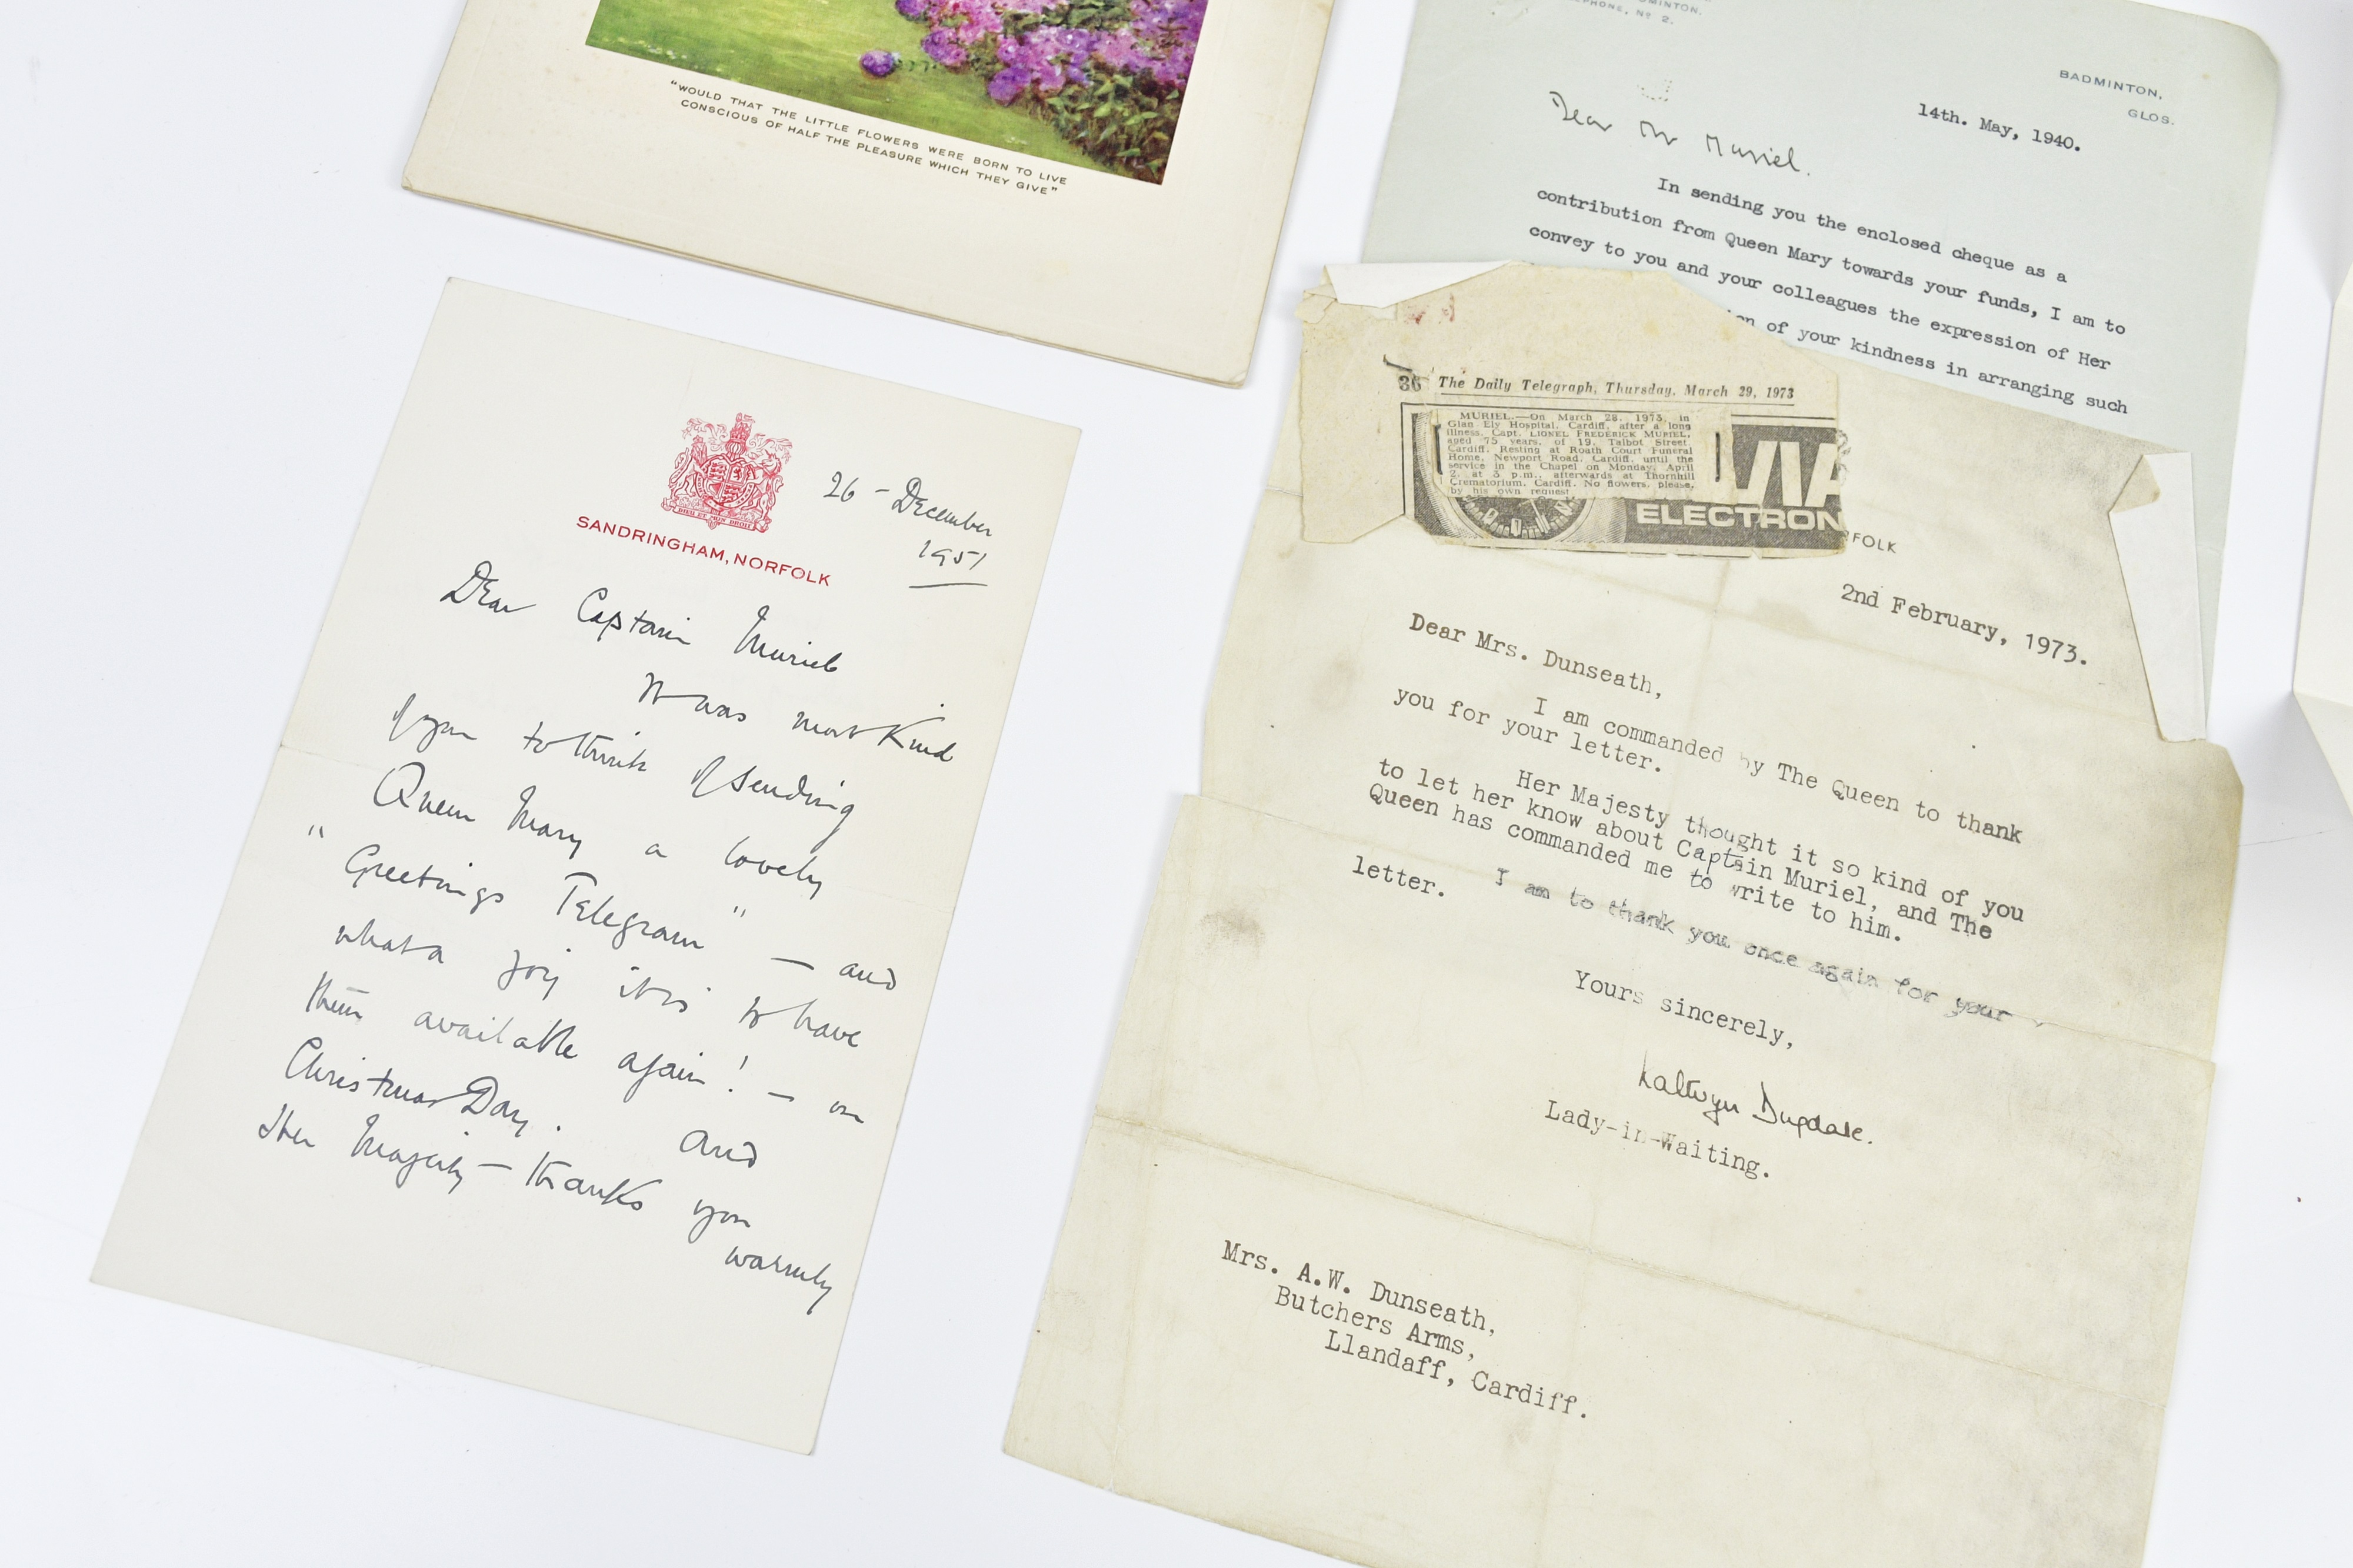 "WOULD THAT THE LITTLE FLOWERS WERE BORN TO LIVE
CONSCIOUS OF HALF THE PLEASURE WHICH THEY GIVE"
SANDRINGHAM, NORFOLK
DIEU ET MON DROIT
26 - December
1951
Dear Captain Muriel
It was most Kind
of you to think of sending
Queen Mary a lovely
"Greetings Telegram" — and
what a joy it is to have
them available again! — on
Christmas Day. And
Her Majesty — thanks you
warmly
MINTON,
PHONE, No 2.
BADMINTON,
GLOS.
14th. May, 1940.
Dear Mr Muriel.
In sending you the enclosed cheque as a
contribution from Queen Mary towards your funds, I am to
convey to you and your colleagues the expression of Her
of your kindness in arranging such
36 The Daily Telegraph, Thursday, March 29, 1973
MURIEL.—On March 28, 1973, in
Glan Ely Hospital, Cardiff, after a long
illness, Capt. LIONEL FREDERICK MURIEL,
aged 75 years, of 19, Talbot Street,
Cardiff. Resting at Roath Court Funeral
Home, Newport Road, Cardiff, until the
service in the Chapel on Monday, April
2, at 3 p.m., afterwards at Thornhill
Crematorium, Cardiff. No flowers, please,
by his own request
VIA
ELECTRON
RFOLK
2nd February, 1973.
Dear Mrs. Dunseath,
I am commanded by The Queen to thank
you for your letter.
Her Majesty thought it so kind of you
to let her know about Captain Muriel, and The
Queen has commanded me to write to him.
I am to thank you once again for your
letter.
Yours sincerely,
Kathryn Dugdale.
Lady-in-Waiting.
Mrs. A.W. Dunseath,
Butchers Arms,
Llandaff, Cardiff.